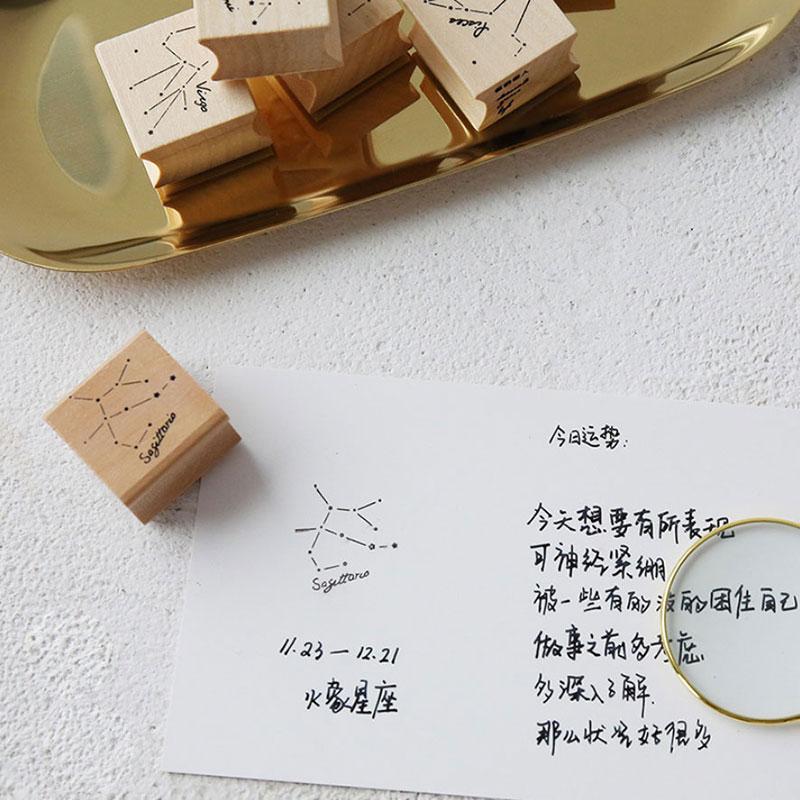 Virgo
Pisces
Sagittario
Sagittario
11.23 — 12.21
火象星座
今日运势:
今天想要有所表现
可神经紧绷
被一些有的没的困住自己
做事之前多考虑
多深入了解.
那么状况好很多